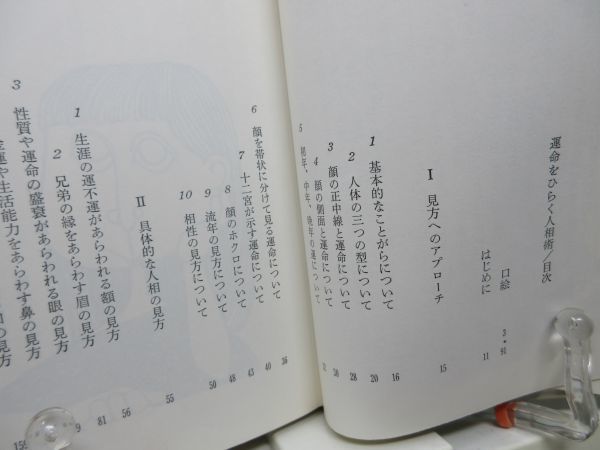 運命をひらく人相術/目次
口絵 3・91
はじめに 11
I 見方へのアプローチ 15
1 基本的なことがらについて 16
2 人体の三つの型について 20
3 顔の正中線と運命について 28
4 顔の側面と運命について 30
5 初年、中年、晩年の運について
6 顔を帯状に分けて見る運命について 36
7 十二宮が示す運命について 40
8 顔のホクロについて 43
9 流年の見方について 48
10 相性の見方について 50
II 具体的な人相の見方 55
1 生涯の運不運があらわれる額の見方 56
2 兄弟の縁をあらわす眉の見方 81
3 性質や運命の盛衰があらわれる眼の見方
運や生活能力をあらわす鼻の見方
の見方